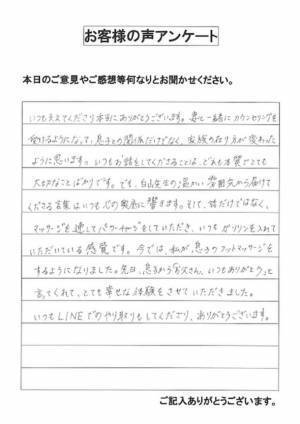 お客様の声アンケート
本日のご意見やご感想等何なりとお聞かせください。
いつも支えてくださり本当にありがとうございます。妻と一緒にカウンセリングを
受けるようになって、息子との関係だけでなく、家族の在り方が変わった
ように思います。いつもお話をしてくださることは、どれも本質でとても
大切なことばかりです。でも、白山先生の温かい雰囲気から届けて
くださる言葉はいつも心の奥底に響きます。そして、話だけではなく、
マッサージを通してパワーチャージをしていただき、いつもガソリンを入れて
いただいている感覚です。今では、私が、息子のフットマッサージを
するようになりました。先日、息子から「お父さん、いつもありがとう」と
言ってくれて、とても幸せな体験をさせていただきました。
いつもLINEでのやり取りもしてくださり、ありがとうございます。
ご記入ありがとうございます。